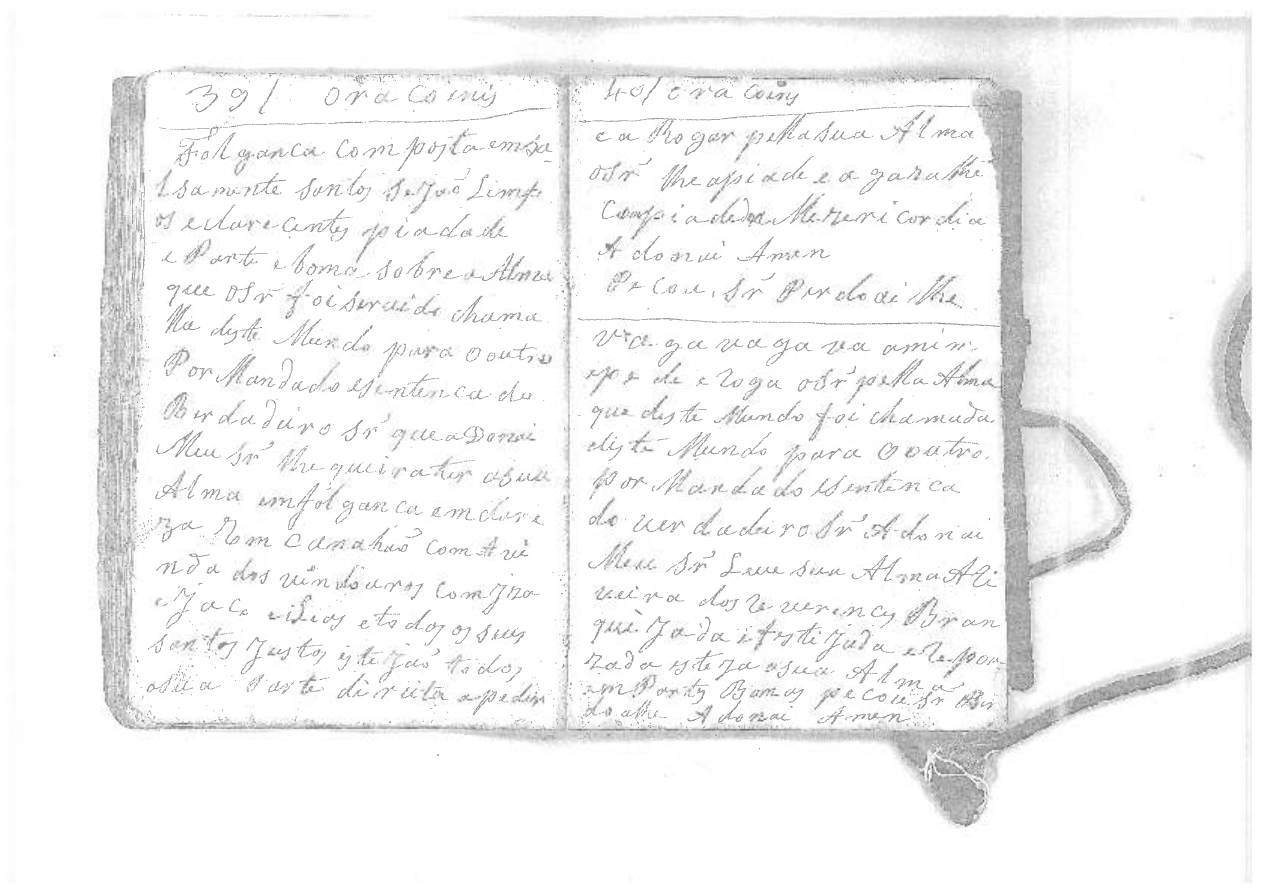 39/ ora Coinis
Folganca Com posta em sa
lsamente santos SeJaõ Limp
os e clare Centes piadade
e Parte e boma sobre a Alma
que osr̃ foi seruido chama
lla deste Mundo para o outro
Por Mandado esentenca do
Berdadeiro Sr̃ que aDonai
Meu sr̃ lhe queira ter asua
Alma em folganca em clare
za com canahaõ com A vi
nda dos vindouros com Jza
e Jaco eiLias etodos os seus
santos Justos isteJaõ todos
asua Parte diruita apedir
40/ ora Coins
e a Rogar pella sua Alma
osr̃ lhe apiade e a gazalhe
Com piadeda Mezericordia
Adonai Amen
Pecou, Sr̃ Perdoai lhe
va ga va ga va a mim
epede e roga osr̃ pella Alma
que deste Mundo foi chamada
diste Mundo para ooutro
por Mandado esentenca
do uerdadeiro Sr̃ Adonai
Meu Sr̃ Leue sua Alma
Bran
queJada
zada esteza asua Alma
em Partes Bomas pecou Sr̃
doalhe Adonai Amen